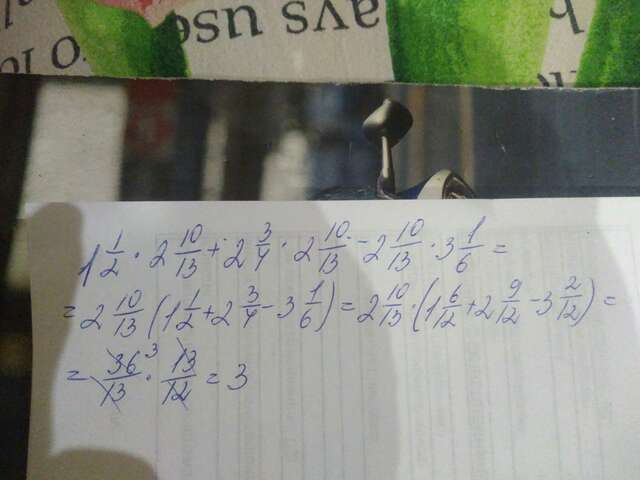 avs use
to
1 1/2 · 2 10/13 + 2 3/4 · 2 10/13 - 2 10/13 · 3 1/6 =
= 2 10/13 (1 1/2 + 2 3/4 - 3 1/6) = 2 10/13 · (1 6/12 + 2 9/12 - 3 2/12) =
= 36/13 3 · 13/12 = 3